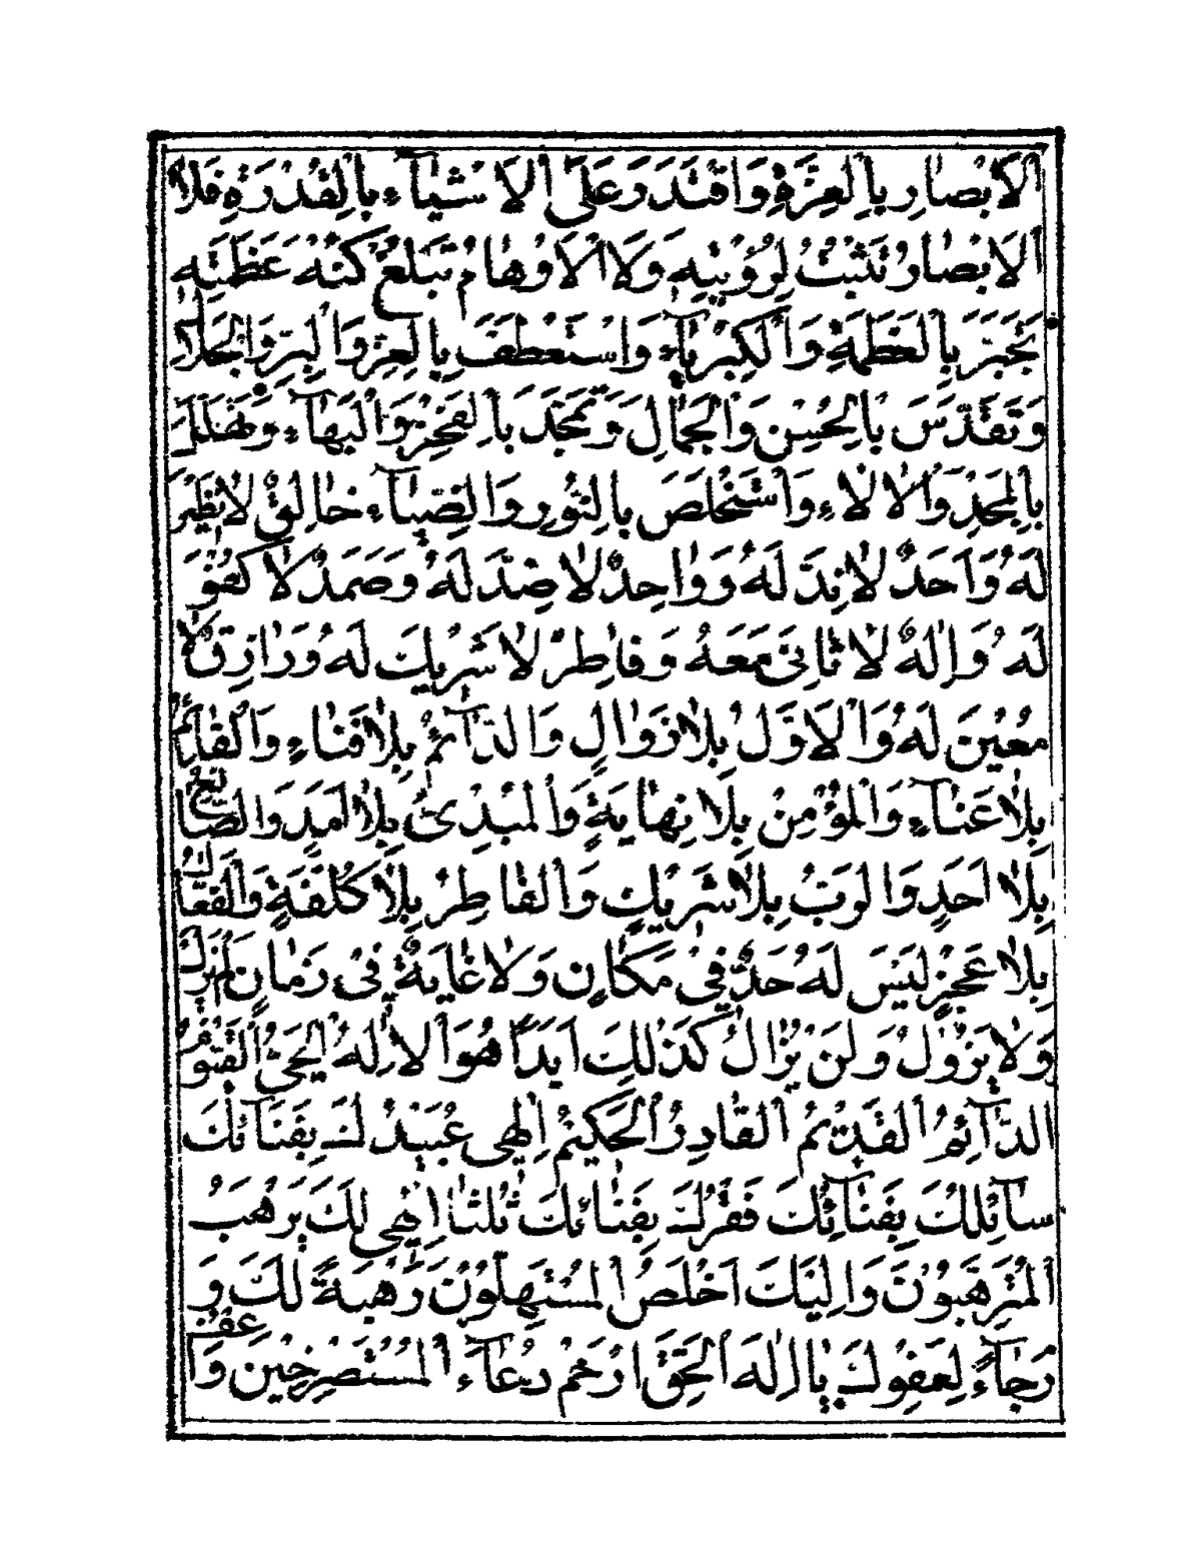 اَلْاَبْصَارِ بِالْعِزَّةِ وَاقْتَدَرَ عَلَى الْاَشْيَآءِ بِالْقُدْرَةِ فَلَا
الْاَبْصَارُ تَثْبُتُ لِرُؤْيَتِهٖ وَلَا الْاَوْهَامُ تَبْلُغُ كُنْهَ عَظَمَتِهٖ
تَجَبَّرَ بِالْعَظَمَةِ وَالْكِبْرِيَآءِ وَاسْتَعْطَفَ بِالْعِزِّ وَالْبِرِّ وَالْجَلَالِ
وَتَقَدَّسَ بِالْحُسْنِ وَالْجَمَالِ وَتَمَجَّدَ بِالْفَخْرِ وَالْبَهَآءِ وَتَهَلَّلَ
بِالْمَجْدِ وَالْاٰلَاءِ وَاسْتَخْلَصَ بِالنُّوْرِ وَالضِّيَآءِ خَالِقٌ لَا نَظِيْرَ
لَهُ وَاَحَدٌ لَا نِدَّ لَهُ وَوَاحِدٌ لَا ضِدَّ لَهُ وَصَمَدٌ لَا كُفُوَ
لَهُ وَاِلٰهٌ لَا ثَانِىَ مَعَهُ وَفَاطِرٌ لَا شَرِيْكَ لَهُ وَرَازِقٌ لَا
مُعِيْنَ لَهُ وَالْاَوَّلُ بِلَا زَوَالٍ وَالدَّآئِمُ بِلَا فَنَاءٍ وَالْقَآئِمُ
بِلَا عَنَآءٍ وَالْمُؤْمِنُ بِلَا نِهَايَةٍ وَالْمُبْدِئُ بِلَا اَمَدٍ وَالصَّانِعُ
بِلَا اَحَدٍ وَالرَّبُّ بِلَا شَرِيْكٍ وَالْفَاطِرُ بِلَا كُلْفَةٍ وَالْفَعَّالُ
بِلَا عَجْزٍ لَيْسَ لَهُ حَدٌّ فِىْ مَكَانٍ وَلَا غَايَةٌ فِىْ زَمَانٍ لَمْ يَزَلْ
وَلَا يَزُوْلُ وَلَنْ يَزَالُ كَذٰلِكَ اَبَدًا هُوَ الْاِلٰهُ الْحَىُّ الْقَيُّوْمُ
الدَّآئِمُ الْقَدِيْمُ الْقَادِرُ الْحَكِيْمُ اِلٰهِى عُبَيْدُكَ بِفِنَآئِكَ
سَآئِلُكَ بِفِنَآئِكَ فَقِيْرُكَ بِفِنَائِكَ ثَلٰثًا اِلٰهِى لَكَ يَرْهَبُ
الْمُتَرَهِّبُوْنَ وَاِلَيْكَ اَخْلَصَ الْمُسْتَهِلُّوْنَ رَهْبَةً لَكَ وَ
رَجَآءً لِعَفْوِكَ يَا اِلٰهَ الْحَقِّ ارْحَمْ دُعَآءَ الْمُسْتَصْرِخِيْنَ وَاعْفُ